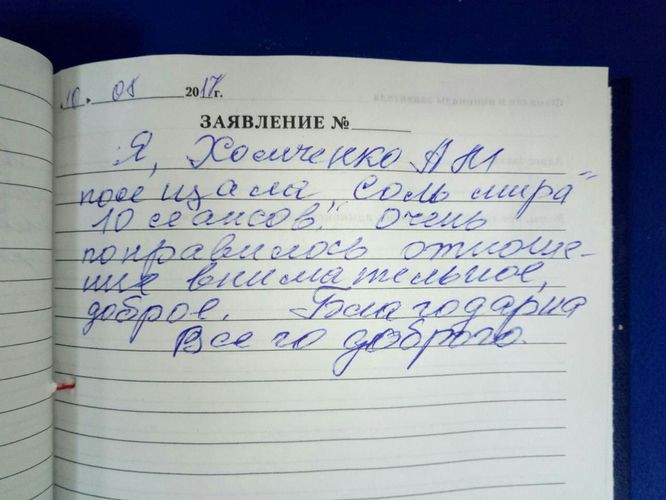 10. 08 2017г.
ЗАЯВЛЕНИЕ №
Я, Хомченко АН
посещала „Соль мира"
10 сеансов. Очень
понравилось отноше-
ние внимательное,
доброе. Благодарна
Всего доброго.